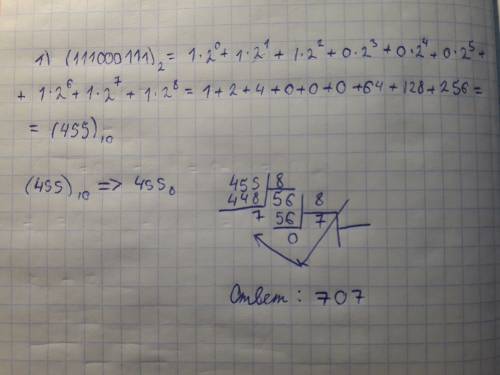 1) (111000111)₂ = 1·2⁰ + 1·2¹ + 1·2² + 0·2³ + 0·2⁴ + 0·2⁵ +
+ 1·2⁶ + 1·2⁷ + 1·2⁸ = 1+2+4+0+0+0+64+128+256 =
= (455)₁₀
(455)₁₀ => 455₈
455 8
448 56 8
7 56 7
0
Ответ: 707